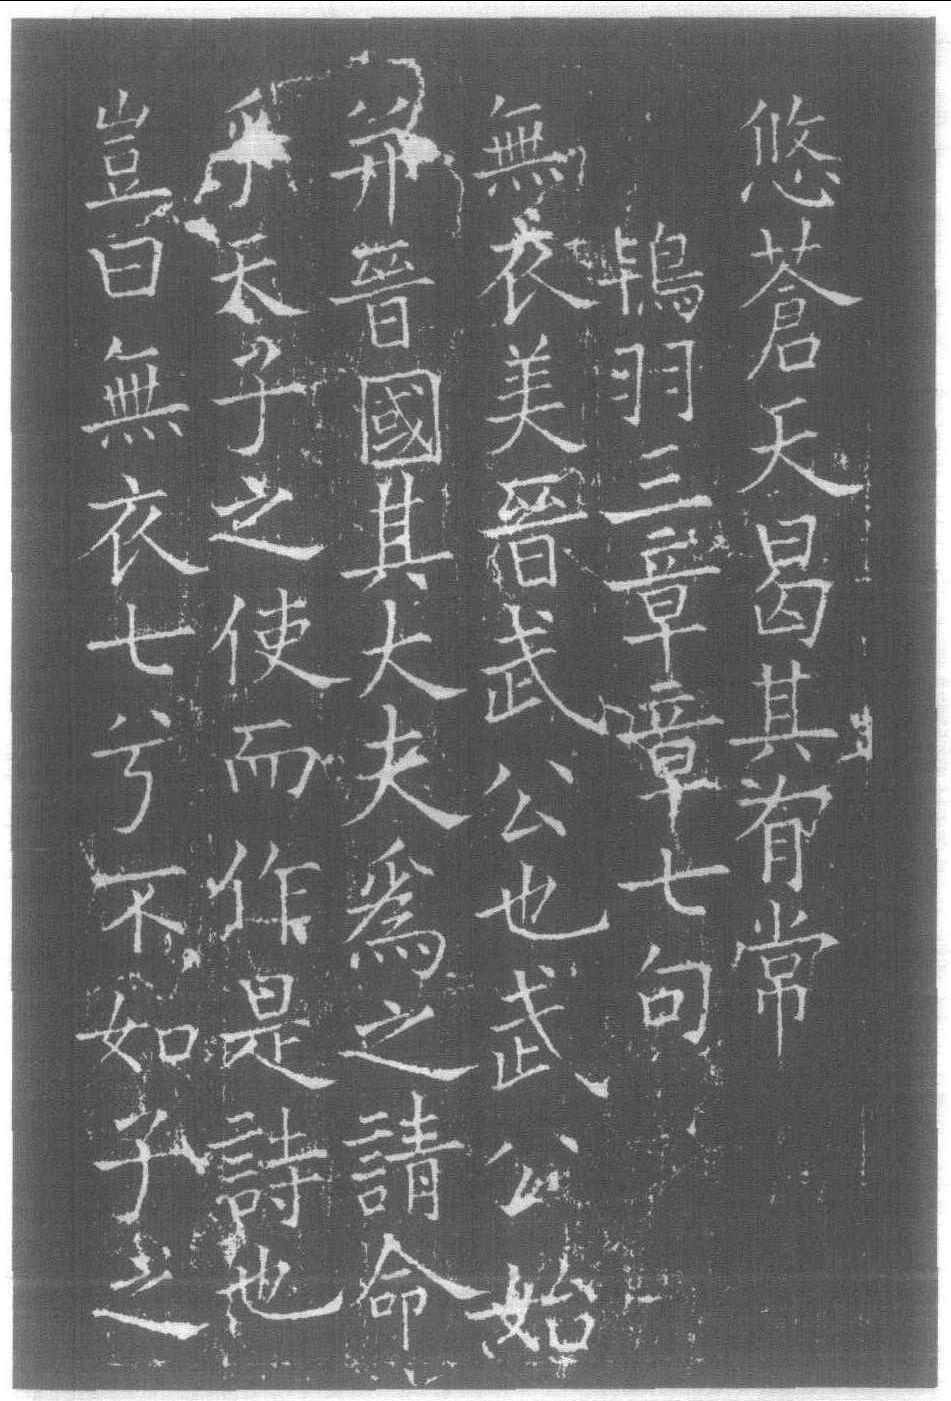 悠蒼天曷其有常
鴇羽三章章七句
無衣美晉武公也武公始
并晉國其大夫為之請命
乎天子之使而作是詩也
豈曰無衣七兮不如子之